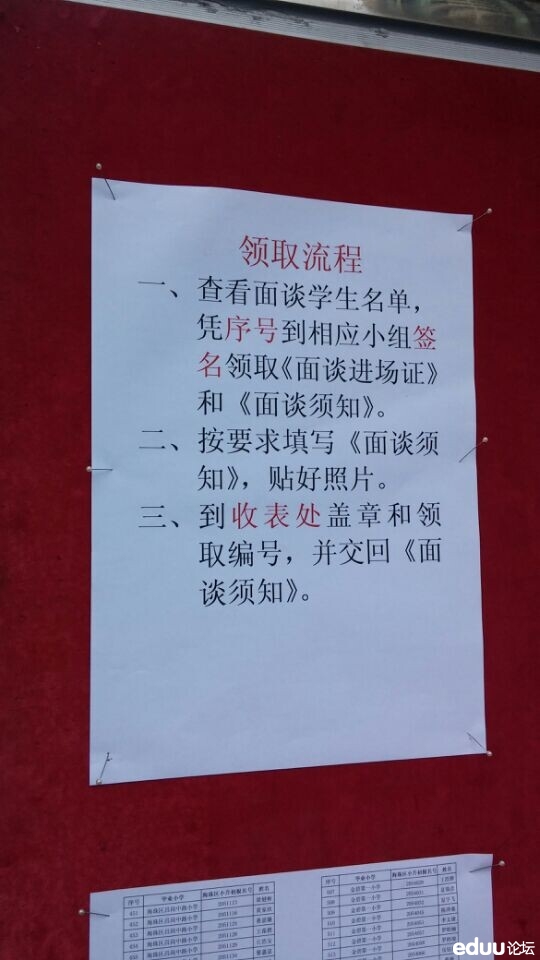 领取流程
一、查看面谈学生名单，
凭序号到相应小组签
名领取《面谈进场证》
和《面谈须知》。
二、按要求填写《面谈须
知》，贴好照片。
三、到收表处盖章和领
取编号，并交回《面
谈须知》。
序号 毕业小学 海珠区小升初报名号 姓名
451 海珠区昌岗中路小学
海珠区昌岗中路小学
海珠区昌岗中路小学
序号 毕业小学 海珠区小升初报名号 姓名
507 金碧第一小学
508 金碧第一小学
509 金碧第一小学
510 金碧第一小学
511 金碧第一小学
512 金碧第一小学
eduu论坛